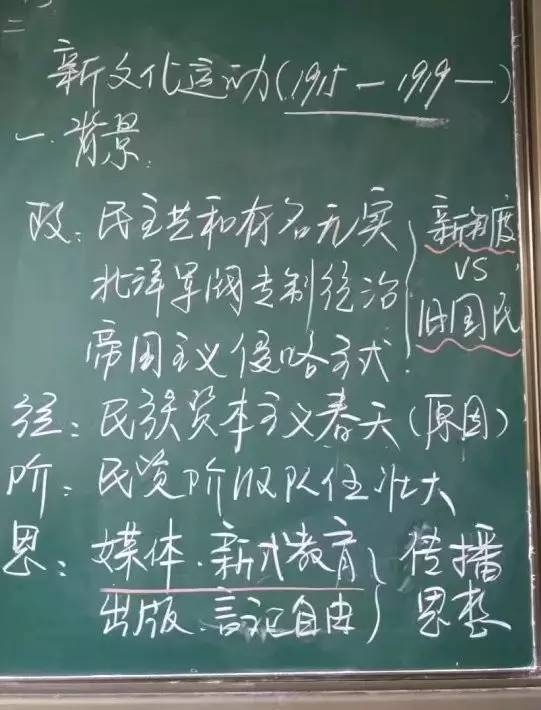 二
新文化运动(1915—1919—)
一.背景.
政:民主共和有名无实
北洋军阀专制统治
帝国主义侵略方式.
新制度
VS
旧国民
经:民族资本主义春天(原因)
阶:民资阶级队伍壮大
思:媒体.新式教育
出版.言论自由
传播
思想